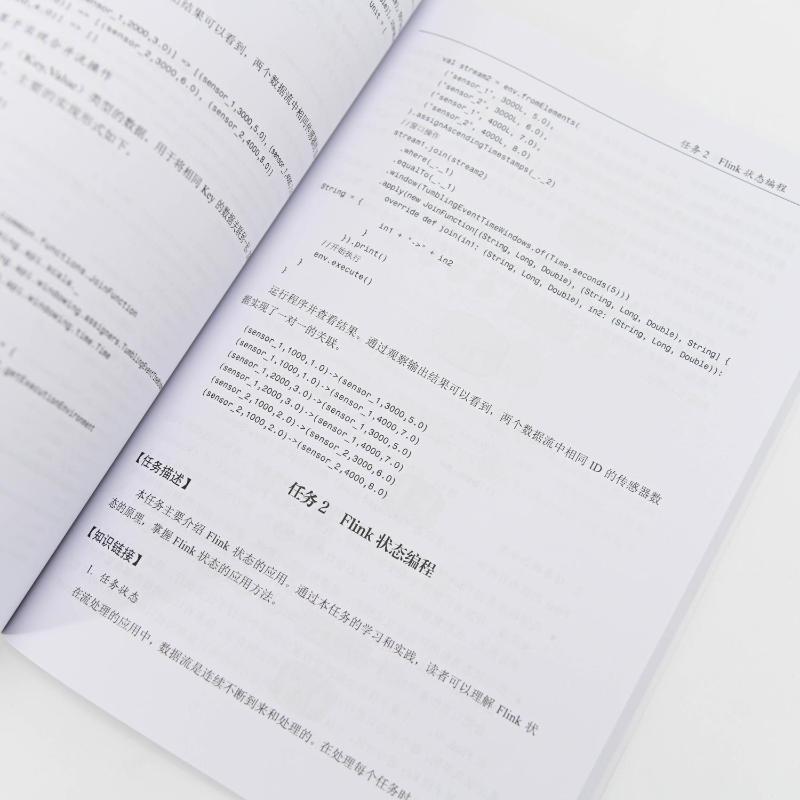 出结果可以看到，两个数据流中相同传感器
_1,2000,3.0)] => [(sensor_1,3000,5.0),
[(sensor_2,3000,6.0), (sensor_2,4000,8.0)]
(Key,Value) 类型的数据，用于将相同 Key 的数据关联
主要的实现形式如下。
common.functions.JoinFunction
api.scala._
api.windowing.time.Time
= {
.getExecutionEnvironment
任务 2 Flink 状态编程
val stream2 = env.fromElements(
("sensor_1", 3000L, 5.0),
("sensor_2", 3000L, 6.0),
("sensor_1", 4000L, 7.0),
("sensor_2", 4000L, 8.0)
).assignAscendingTimestamps(_._2)
//窗口操作
stream1.join(stream2)
.where(_._1)
.equalTo(_._1)
.window(TumblingEventTimeWindows.of(Time.seconds(5)))
.apply(new JoinFunction[(String, Long, Double), (String, Long, Double), String] {
override def join(in1: (String, Long, Double), in2: (String, Long, Double)):
String = {
in1 + "->" + in2
}
}).print()
//开始执行
env.execute()
}
}
运行程序并查看结果。通过观察输出结果可以看到，两个数据流中相同 ID 的传感器数
据实现了一对一的关联。
(sensor_1,1000,1.0)->(sensor_1,3000,5.0)
(sensor_1,1000,1.0)->(sensor_1,4000,7.0)
(sensor_1,2000,3.0)->(sensor_1,3000,5.0)
(sensor_1,2000,3.0)->(sensor_1,4000,7.0)
(sensor_2,1000,2.0)->(sensor_2,3000,6.0)
(sensor_2,1000,2.0)->(sensor_2,4000,8.0)
任务 2 Flink 状态编程
【任务描述】
本任务主要介绍 Flink 状态的应用。通过本任务的学习和实践，读者可以理解 Flink 状
态的原理，掌握 Flink 状态的应用方法。
【知识链接】
1. 任务状态
在流处理的应用中，数据流是连续不断到来和处理的。在处理每个任务时